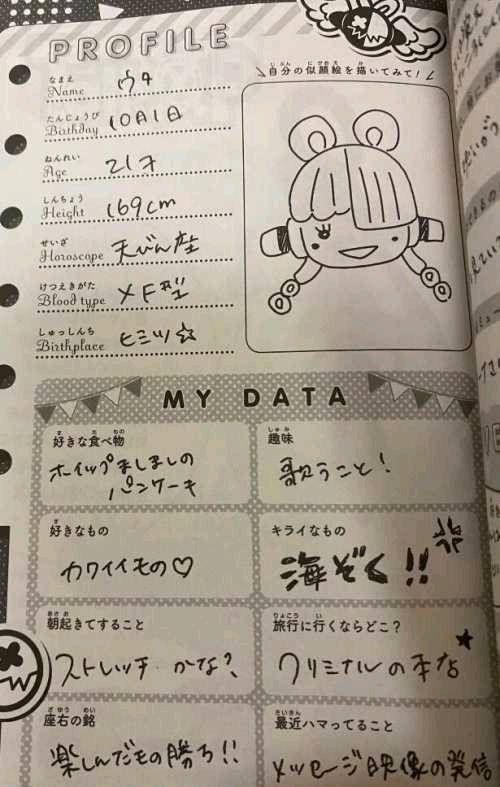 PROFILE
なまえ
Name ウタ
たんじょうび
Birthday 10月1日
ねんれい
Age 21才
しんちょう
Height 169cm
せいざ
Horoscope 天びん座
けつえきがた
Blood type XF型
しゅっしんち
Birthplace ヒミツ☆
\自分の似顔絵を描いてみて!/
MY DATA
好きな食べ物
ホイップましましの
パンケーキ
趣味
歌うこと!
好きなもの
カワイイもの♡
キライなもの
海ぞく!!
朝起きてすること
ストレッチ かな?
旅行に行くならどこ?
クリミナルの本店
座右の銘
楽しんだもの勝ち!!
最近ハマってること
メッセージ映像の発信